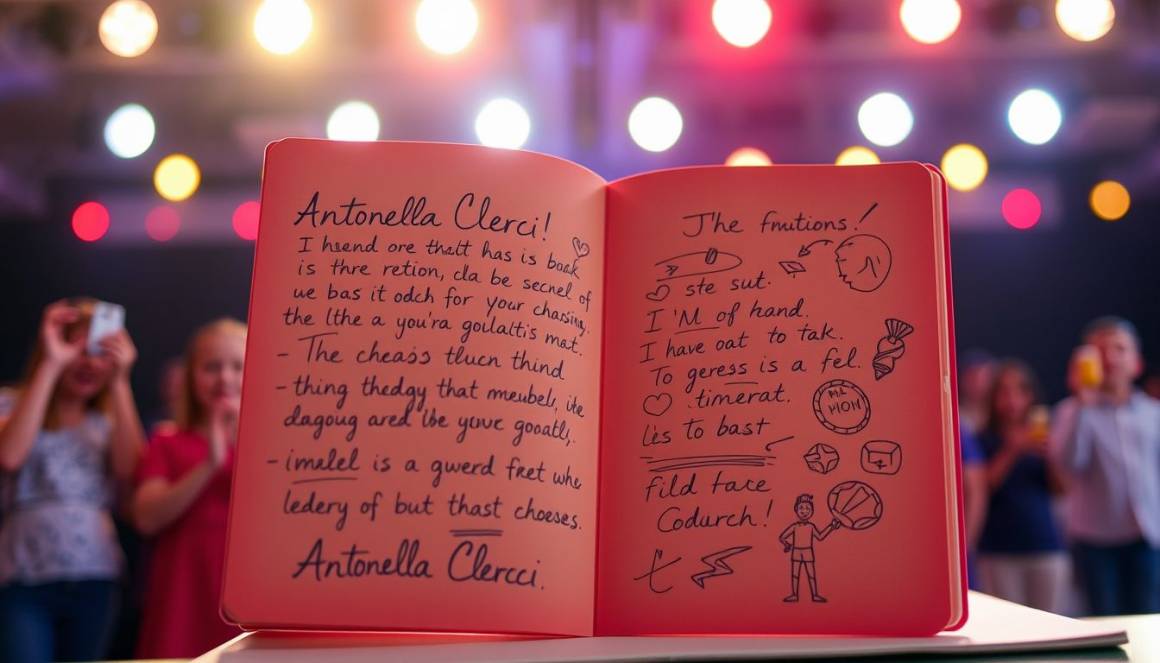 Antonella Clerci!
I hsend ore thatt has is book
is thre retion, cla be secnel of
we bas it odch for your chasing.
the lthe a you'ra goulaltis mat.
- The cheass tlucn thind
- thing thedgy that meubel, ite
dagoug ared lbe yove goatl,.
- imalel is a gwerd fret whe
ledery of but thast choeses.
Antonella Clercci.
The fmutions!
ste sut.
I 'M of hand.
I have oat to tak.
To geress is a fel.
.timerat.
lis to bast
fild tace
Codurch!